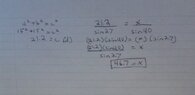 a² + b² = c²
15² + 15² = c²
21.2 = c
21.2 / sin27 = x / sin90
(21.2)(sin90) = (x)(sin27)
(21.2)(sin90) / sin27 = x
46.7 = x